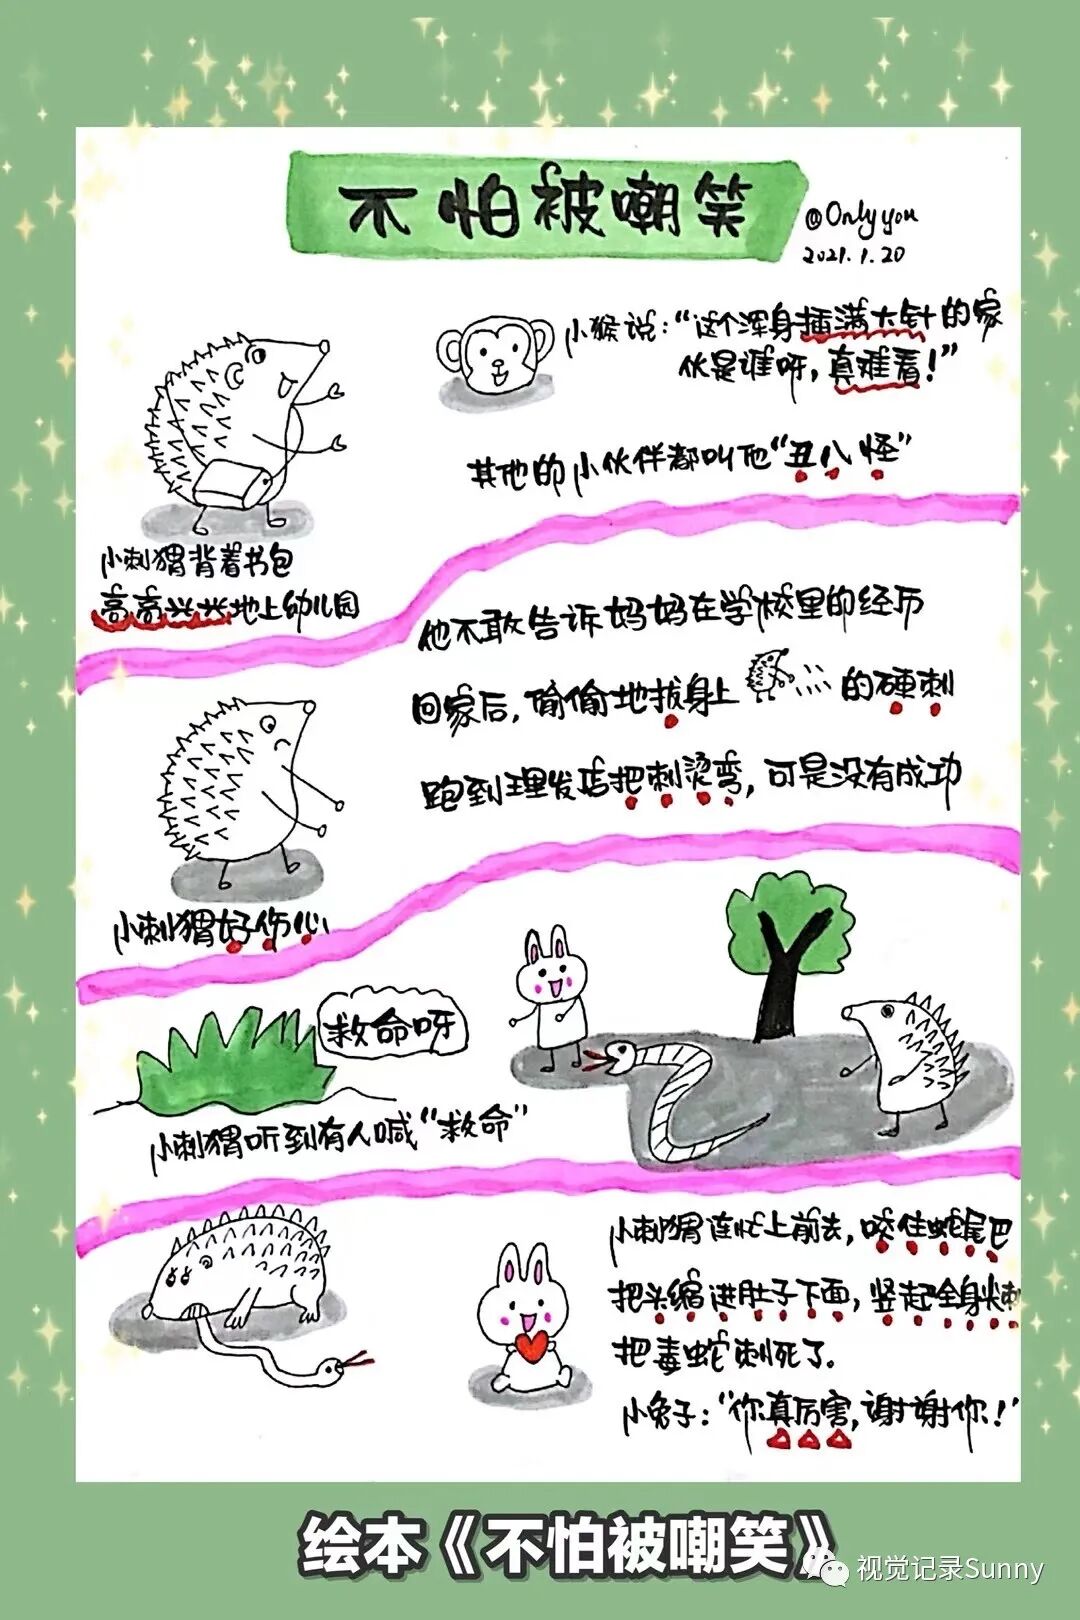 不怕被嘲笑
@Only you
2021.1.20
小猴说：“这个浑身插满大针的家
伙是谁呀，真难看！”
其他的小伙伴都叫他“丑八怪”
小刺猬背着书包
高高兴兴地上幼儿园
他不敢告诉妈妈在学校里的经历
回家后，偷偷地拔身上的硬刺
跑到理发店把刺烫弯，可是没有成功
小刺猬好伤心
救命呀
小刺猬听到有人喊“救命”
小刺猬连忙上前去，咬住蛇尾巴
把头缩进肚子下面，竖起全身尖刺
把毒蛇刺死了。
小兔子：“你真厉害，谢谢你！”
绘本《不怕被嘲笑》
视觉记录Sunny